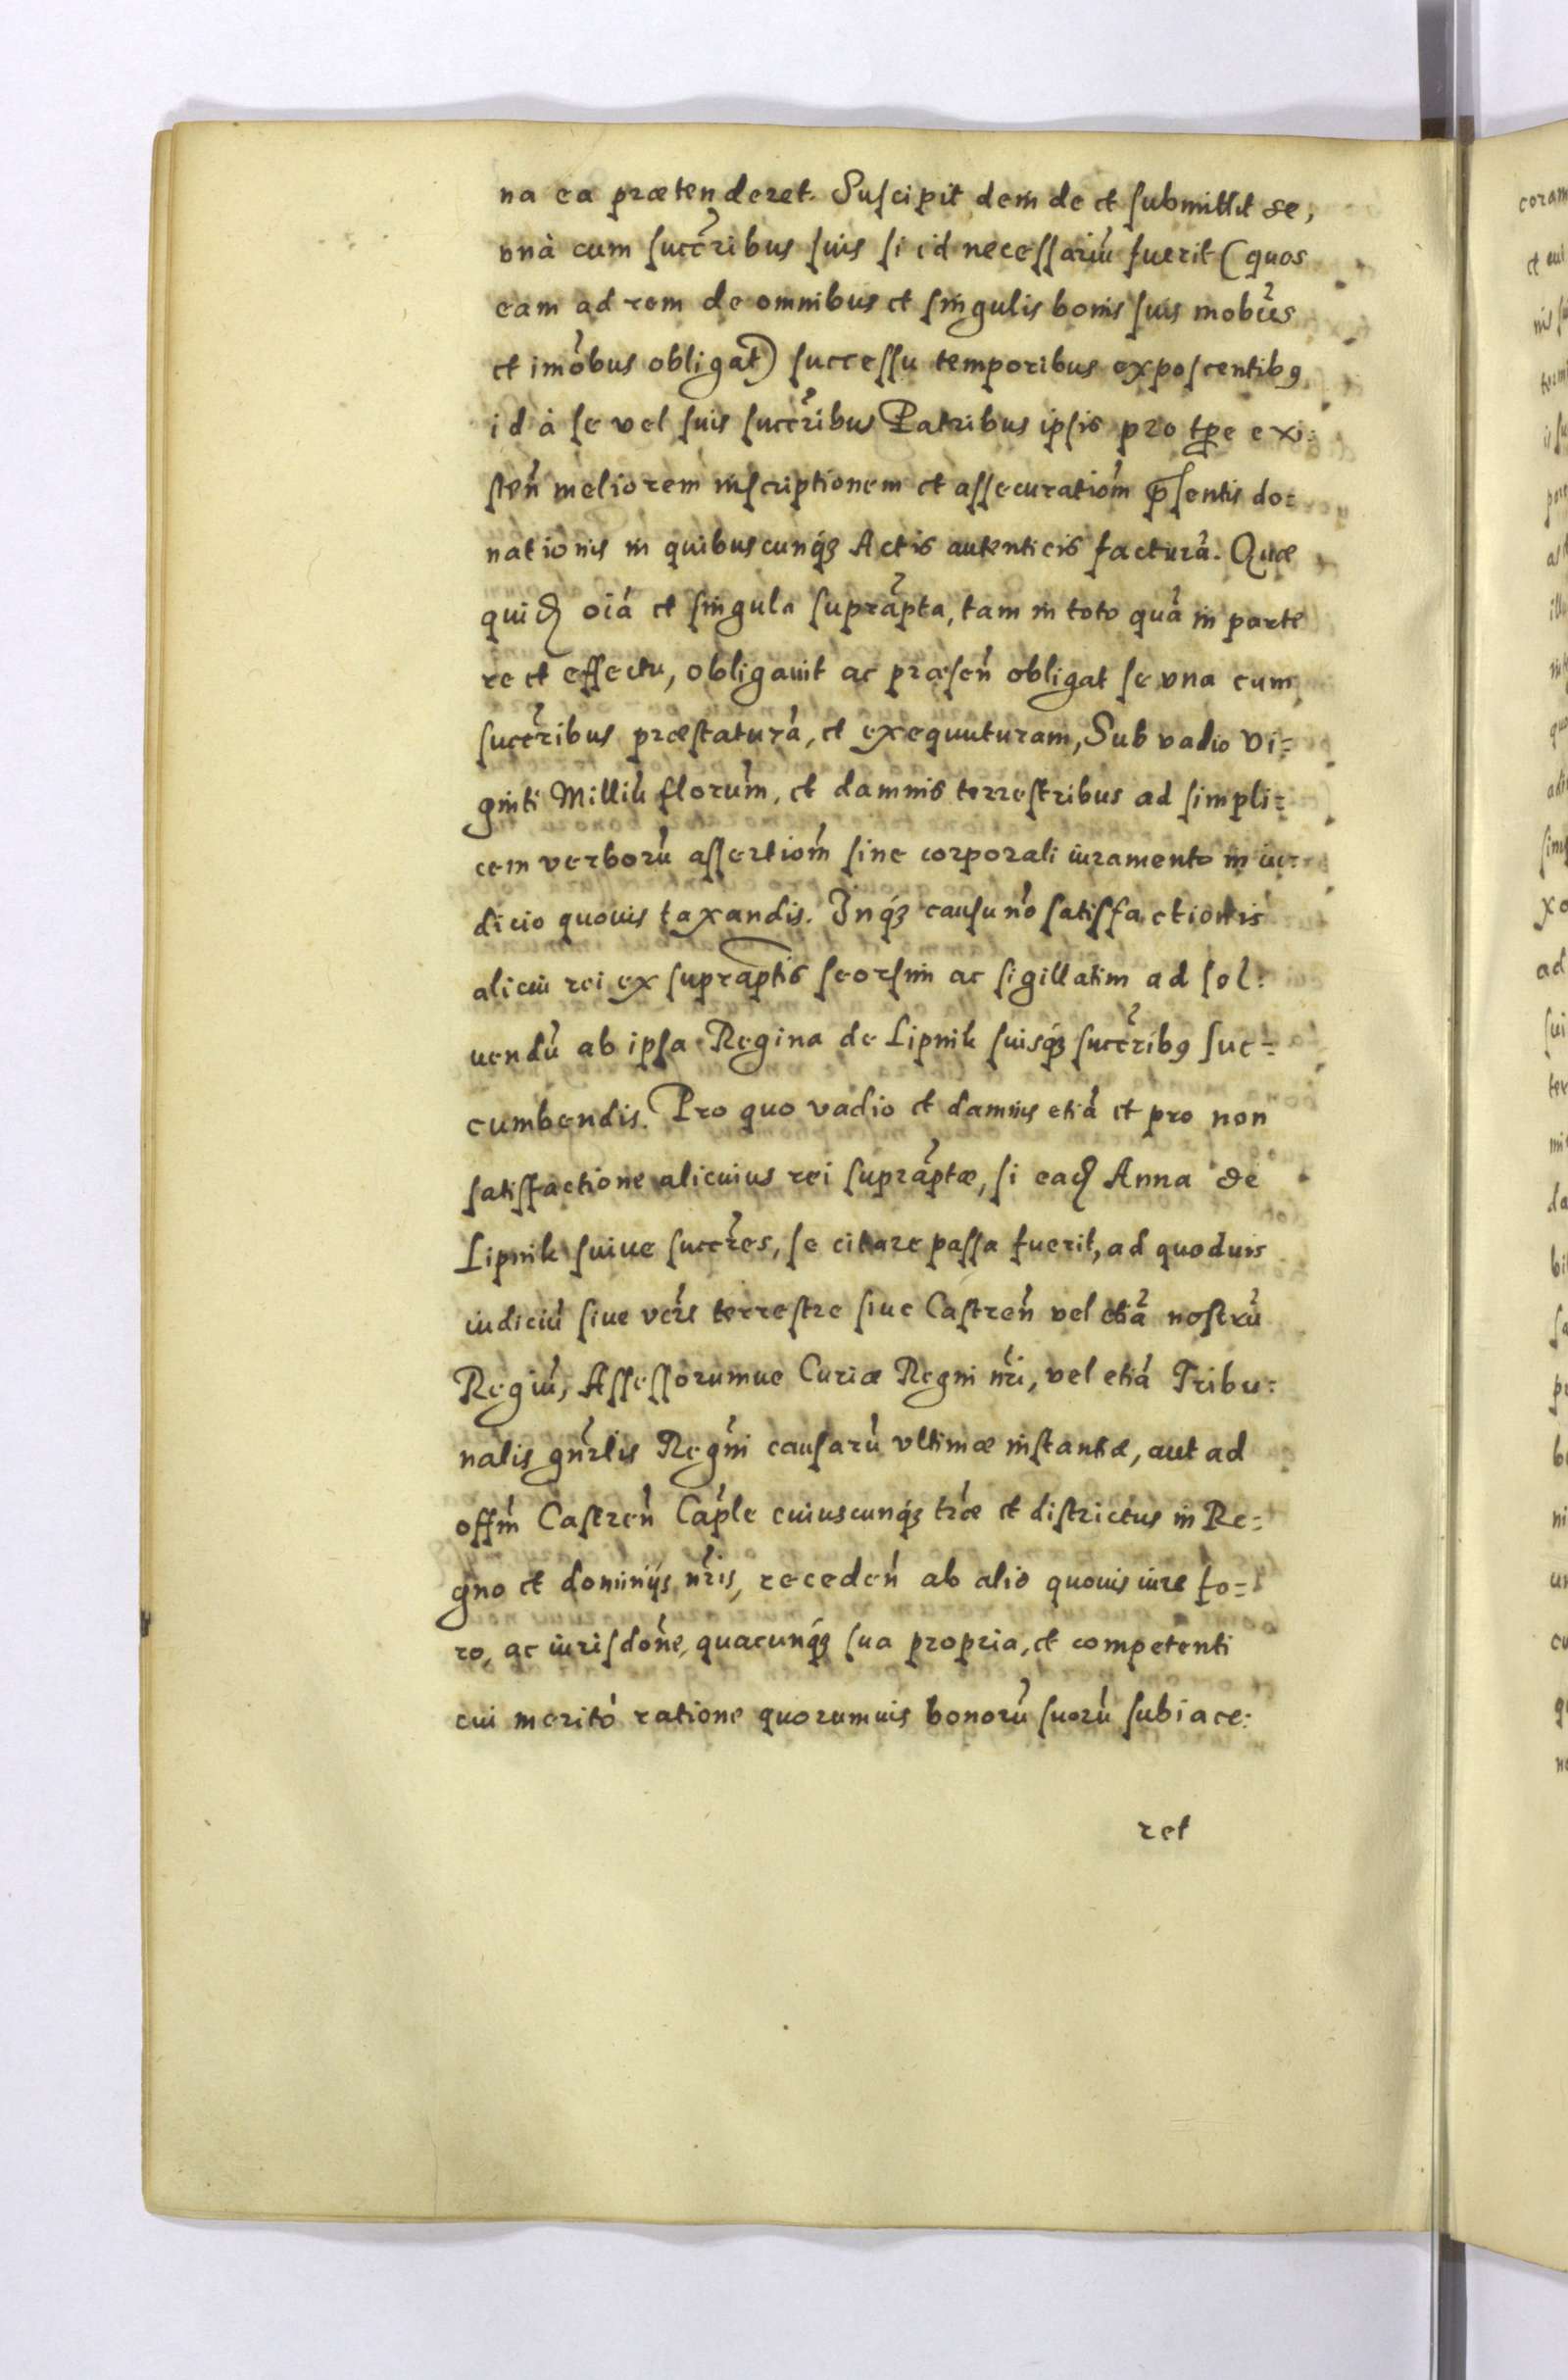 na ea prætenderet. Suſcipit deinde et ſubmittit se,
vnà cum ſuccribus ſuis ſi id neceſſariũ fuerit (quos
eam ad rem de omnibus et ſingulis bonis ſuis mobus
et imobus obligat) ſucceſſu temporibus expoſcentibꝰ
id à ſe vel ſuis ſuccribus Patribus ipſis pro tpe exi:
ſteñ meliorem inſcriptionem et aſſecuratiom p̃ſentis do=
nationis in quibuscunqȝ Actis autenticis facturã. Quæ
quid oiã et ſingula suprapta, tam in toto quã in parte
re et effectu, obligauit ac præſeñ obligat ſe vna cum
ſuccribus præſtaturã, et exequuturam, Sub vadio Vi=
ginti Milliũ florum, et damnis terreſtribus ad ſimpli=
cem verborũ aſſertiom ſine corporali iuramento in iu=
dicio quouis taxandis. Inqȝ cauſu nõ ſatiſfactionis
alicui rei ex ſupraptis ſeorſim ac ſigillatim ad ſol:
uendũ ab ipſa Regina de Lipnik ſuisqȝ ſuccribꝰ ſuc=
cumbendis. Pro quo vadio et damnis etiã et pro non
ſatiſfactione alicuius rei ſupraptæ, ſi ead Anna de
Lipnik ſuiue ſuccres, ſe citare paſſa fuerit, ad quoduis
iudiciũ ſiue vers terreſtre ſiue Caſtreñ vel etiã noſtrũ
Regiũ, Aſſeſſorumue Curiæ Regni nri, vel etiã Tribu:
nalis gnrlis Regni cauſarũ vltimæ inſtantiæ, aut ad
offm Caſtreñ Caple cuiuscunqȝ træ et diſtrictus in Re=
gno et dominijs nris, recedeñ ab alio quouis iure fo=
ro, ac iuriſdone, quacunqȝ ſua propria, et competenti
cui meritó ratione quorumuis bonorũ ſuorũ ſubiace:
ret